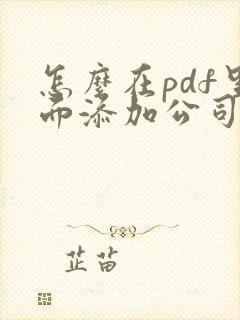 怎麽在pdf里
而添加公司
芷苗